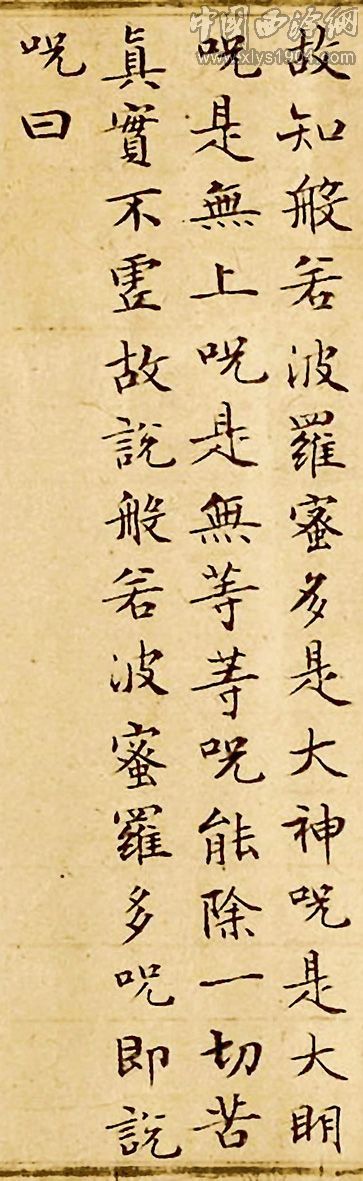 故知般若波羅蜜多是大神呪是大明
呪是無上呪是無等等呪能除一切苦
真實不虛故說般若波蜜羅多呪即說
呪曰
中国西泠網
www.xlys1904.com